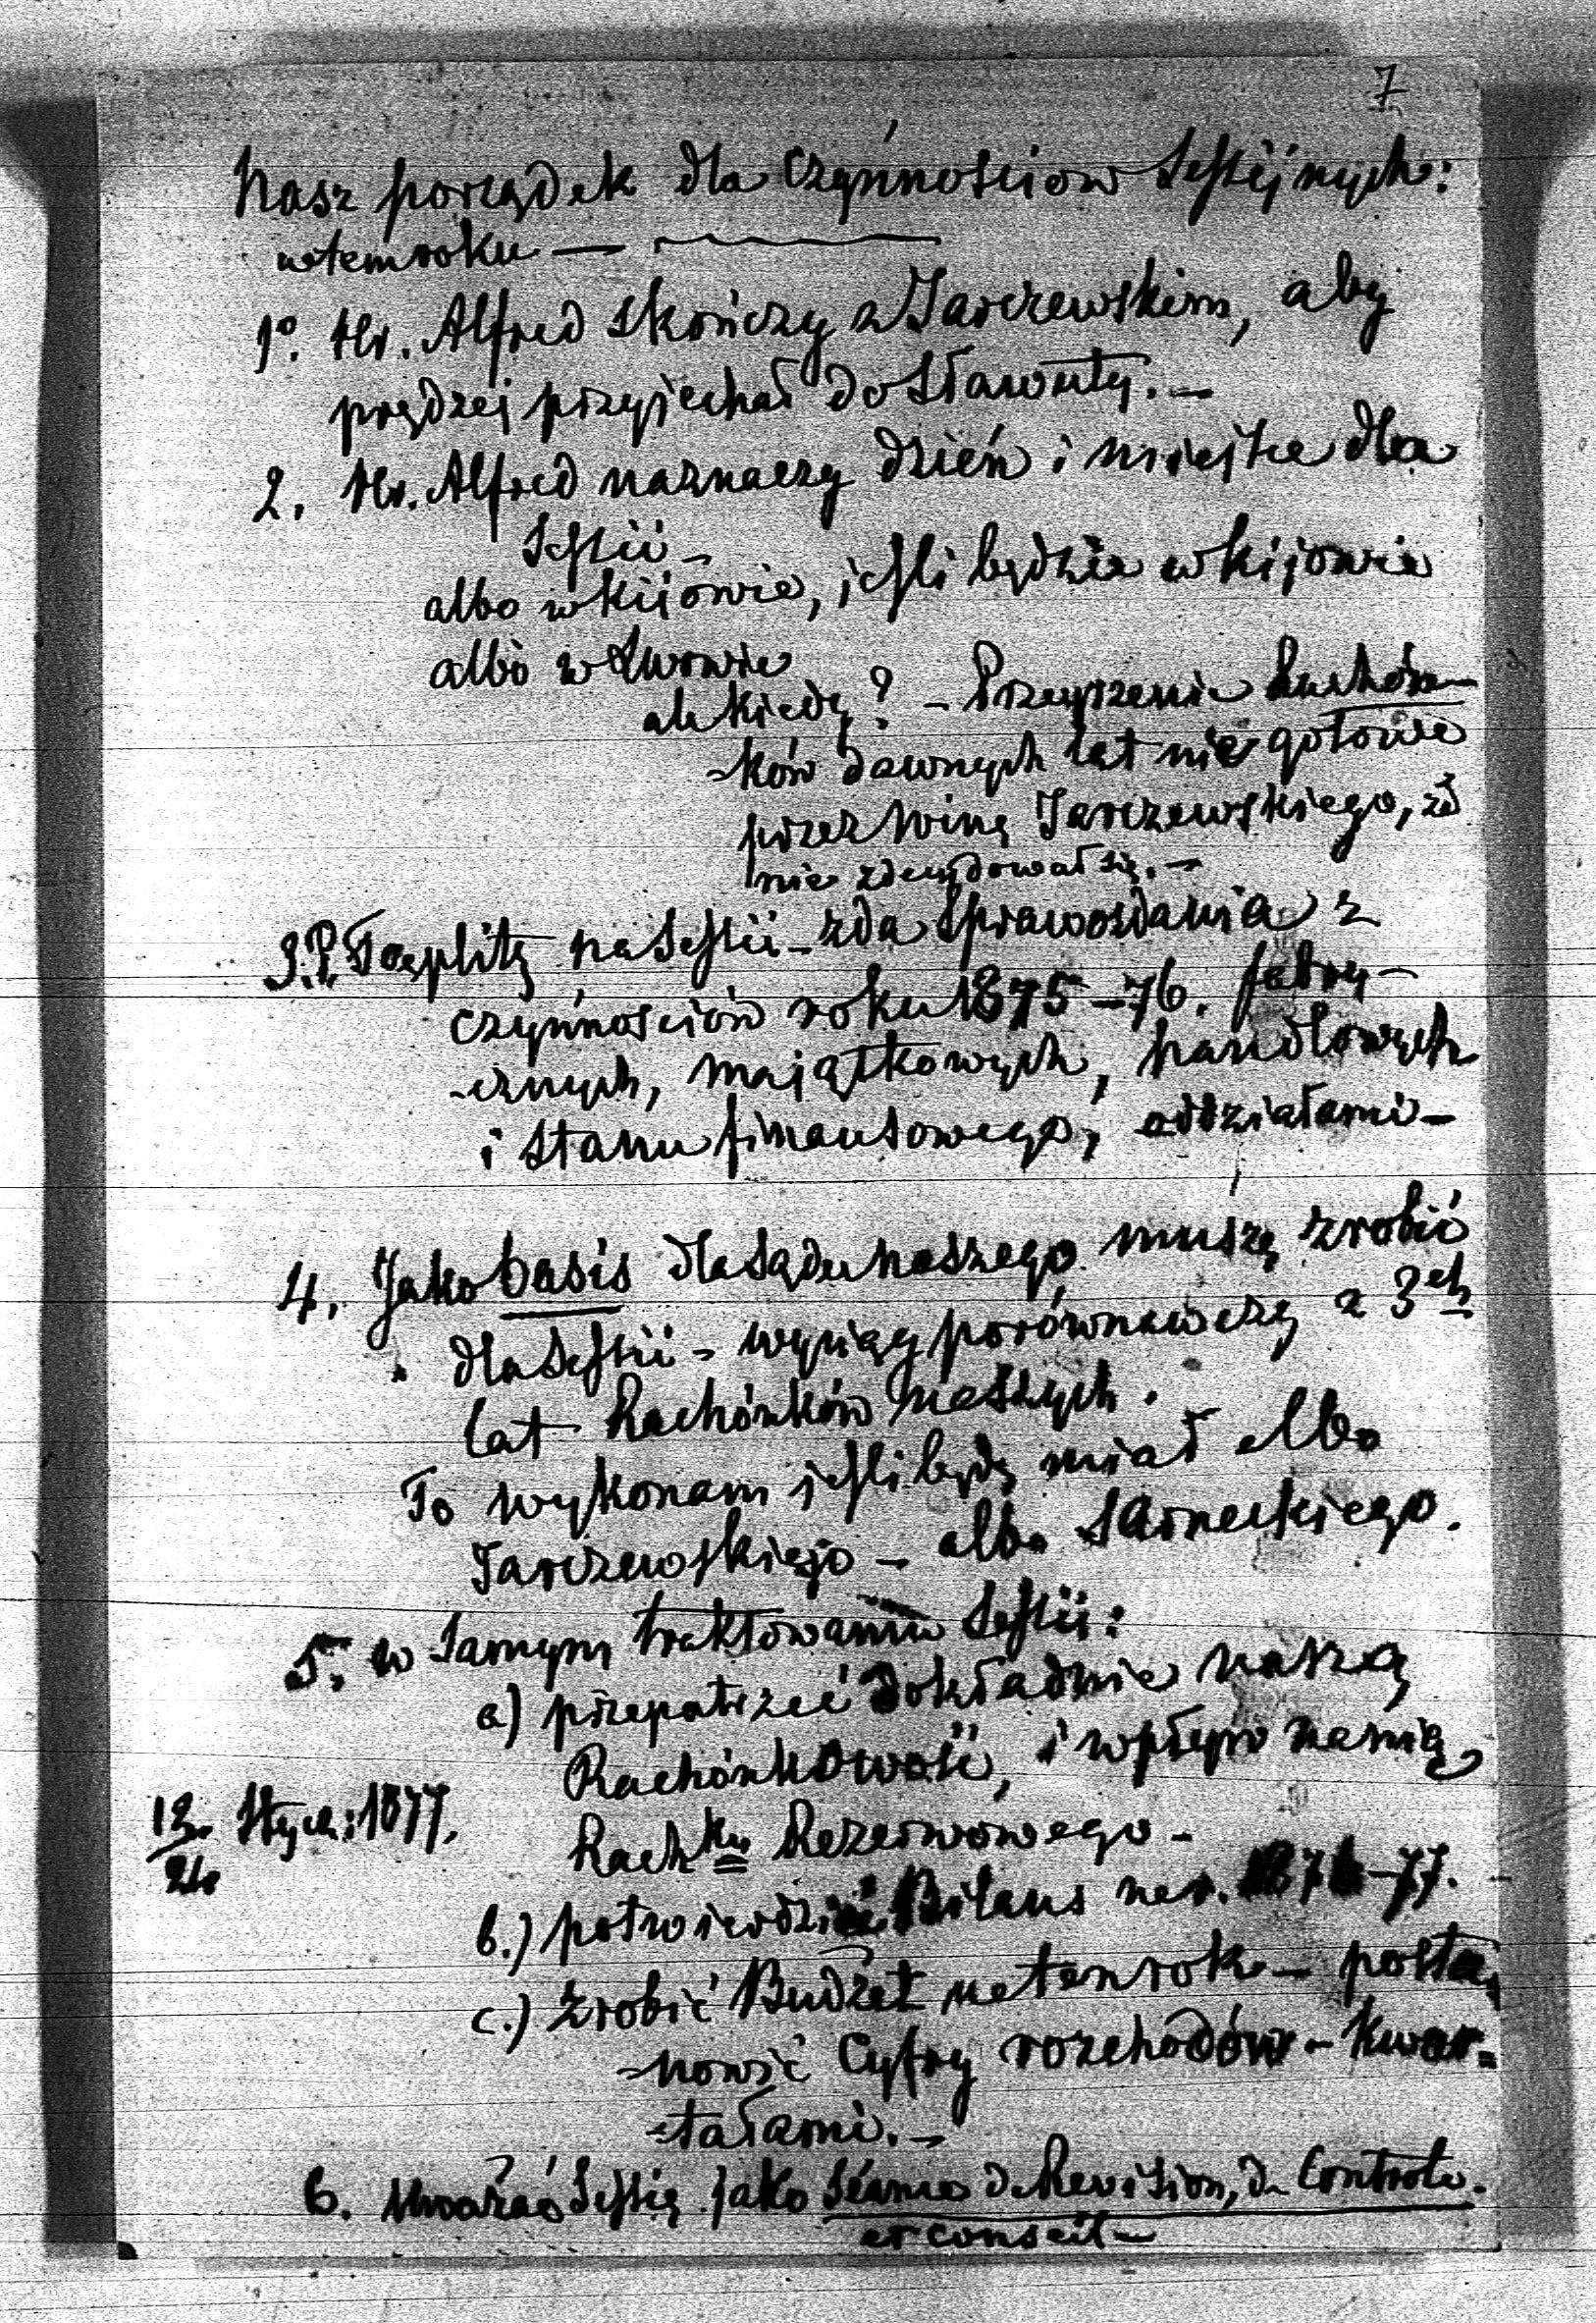 7
Nasz porządek dla Czynnościow Sessijnych:
w tem roku —
1º. Hr. Alfred skończy z Jarczewskim, aby
prędzej przyjechał do Sławuty. —
2. Hr. Alfred naznaczy dzień i miejsce dla
Sessii —
albo w Kijowie, jessli będzie w Kijowie
albo w Lwowie
ale kiedy? — Przeyrzenie Rachón-
-ków dawnych lat nie gotowe
przez winę Jarczewskiego, że
nie zdecydował się. —
3. P. Toeplitz na Sessii — zda Sprawozdania z
czynnościów roku 1875–76. fabry-
-cznych, majątkowych, handlowych
i stanu finansowego, oddziałami —
4. Jako basis dla sądu naszego, muszę zrobić
dla Sessii — wyciąg porównawczy z 3ch
lat Rachónków naszych.
To wykonam jessli będę miał albo
Jarczewskiego — albo Sarneckiego.
5. w samym traktowaniu Sessii:
a) przepatrzeć dokładnie naszą
Rachónkowość, i wpływ na nią
Rachku Rezerwowego —
12/24 Stycz: 1877.
b.) potwierdzić Bilans na r. 1876–77.
c.) zrobić Budżet na ten rok — posta-
-nowić Cyfry rozchodów — kwar-
-tałami. —
6. Uważać Sessię jako séance de Revision, de Controle.
et conseil —